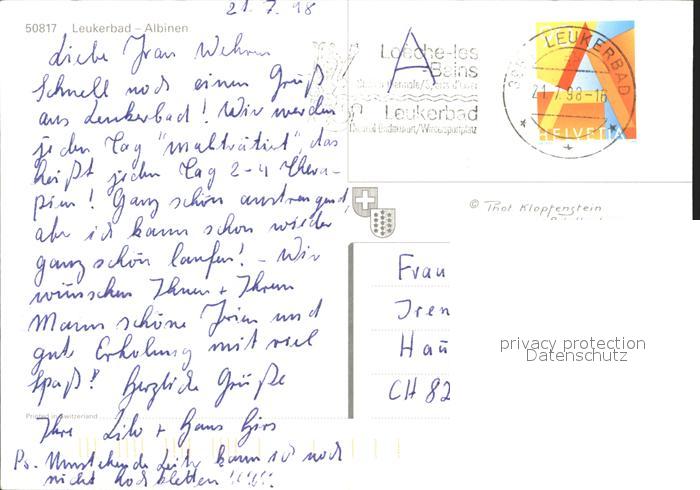 21.7.98
50817 Leukerbad – Albinen
Liebe Frau Wehren
Schnell noch einen Gruß
aus Leukerbad! Wir werden
jeden Tag "malträtiert", das
heißt jeden Tag 2-4 Thera-
pien! Ganz schön anstrengend,
aber ich kann schon wieder
ganz schön laufen! - Wir
wünschen Ihnen + Ihrem
Mann schöne Ferien und
gute Erholung mit viel
Spaß! Herzliche Grüße
Printed in Switzerland
Ihre Lilo + Hans
Ps. Umstehende Leiter kann ich noch
nicht hochklettern !!!!
A
Loèche-les
-Bains
Leukerbad
3954 LEUKERBAD
21.7.98-16
A
HELVETIA
© Thot Klopfenstein
Frau
Iren
Hau
CH 82
privacy protection
Datenschutz